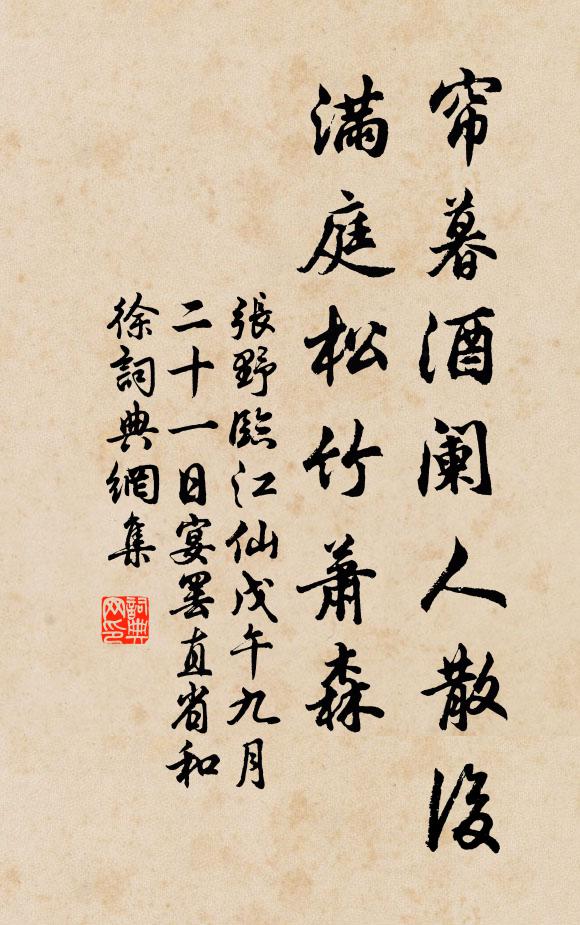 帘暮酒阑人散後
满庭松竹萧森
張野臨江仙戊午九月
二十一日宴罢直省和
徐詞典網集
詞典
网印